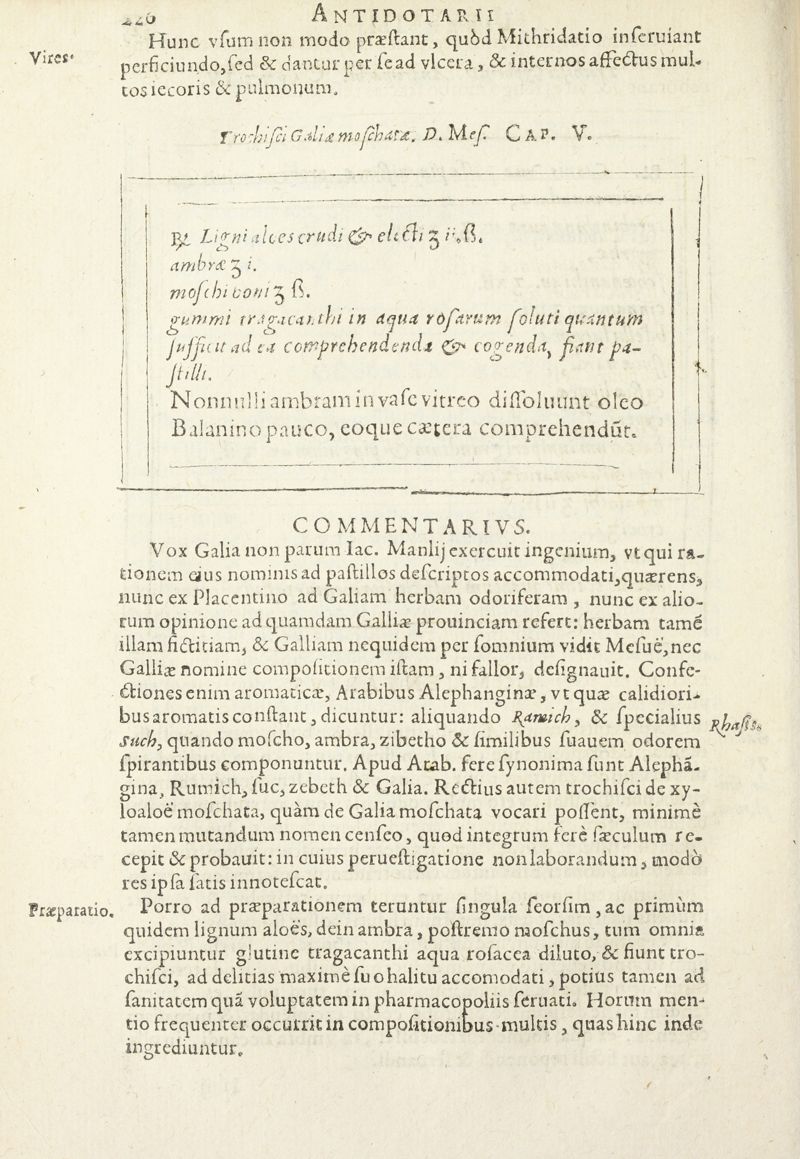 ANTIDOTARII
Hunc vſum non modo præſtant, quòd Mithridatio inſeruiant
Vires.
perficiundo, ſed & dantur per ſe ad vlcera, & internos affectus mul-
tos iecoris & pulmonum.
Trochiſci Galiæ moſchatæ. D. Meſ. CAP. V.
℞ Ligni aloes crudi & electi ʒ ii.ß.
ambræ ʒ i.
moſchi boni ʒ ß.
gummi tragacanthi in aqua roſarum ſoluti quantum
ſufficit ad ea comprehenda & cogenda, fiant pa-
ſtilli.
Nonnulli ambram in vaſe vitreo diſſoluunt oleo
Balanino pauco, eoque cætera comprehendūt.
COMMENTARIVS.
Vox Galia non parum Iac. Manlij exercuit ingenium, vt qui ra-
tionem eius nominis ad paſtillos deſcriptos accommodati, quærens,
nunc ex Placentino ad Galiam herbam odoriferam, nunc ex alio-
rum opinione ad quamdam Galliæ prouinciam refert: herbam tamē
illam fictitiam, & Galliam nequidem per ſomnium vidit Meſuë, nec
Galliæ nomine compoſitionem iſtam, ni fallor, deſignauit. Confe-
ctiones enim aromaticæ, Arabibus Alephanginæ, vt quæ calidiori-
bus aromatis conſtant, dicuntur: aliquando Ramich, & ſpecialius
Rhaſis.
Such, quando moſcho, ambra, zibetho & ſimilibus ſuauem odorem
ſpirantibus componuntur. Apud Arab. fere ſynonima ſunt Alephā-
gina, Rumich, ſuc, zebeth & Galia. Rectius autem trochiſci de xy-
loaloë moſchata, quàm de Galia moſchata vocari poſſent, minimè
tamen mutandum nomen cenſeo, quod integrum ferè ſæculum re-
cepit & probauit: in cuius perueſtigatione non laborandum, modò
res ipſa ſatis innoteſcat.
Præparatio.
Porro ad præparationem teruntur ſingula ſeorſim, ac primùm
quidem lignum aloës, dein ambra, poſtremo moſchus, tum omnia
excipiuntur glutine tragacanthi aqua roſacea diluto, & fiunt tro-
chiſci, ad delitias maximè ſuo halitu accomodati, potiùs tamen ad
ſanitatem quā voluptatem in pharmacopoliis ſeruati. Horum men-
tio frequenter occurrit in compoſitionibus multis, quas hinc inde
ingrediuntur.